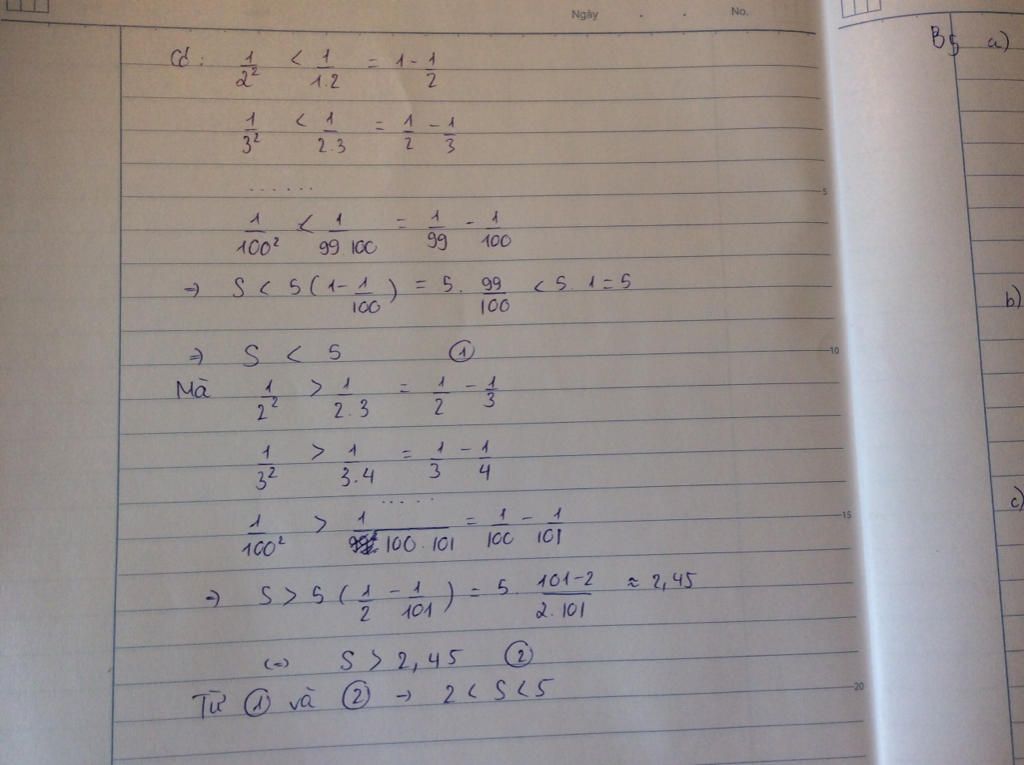 Ngày . . No.
Có : 1/2² < 1/1.2 = 1 - 1/2
1/3² < 1/2.3 = 1/2 - 1/3
......
1/100² < 1/99.100 = 1/99 - 1/100
⇒ S < 5 ( 1 - 1/100 ) = 5 . 99/100 < 5 . 1 = 5
⇒ S < 5 ①
Mà 1/2² > 1/2.3 = 1/2 - 1/3
1/3² > 1/3.4 = 1/3 - 1/4
.....
1/100² > 1/100.101 = 1/100 - 1/101
⇒ S > 5 ( 1/2 - 1/101 ) = 5 . 101-2/2.101 ≈ 2,45
⇔ S > 2,45 ②
Từ ① và ② → 2 < S < 5
5
10
15
20
B5 a)
b)
c)